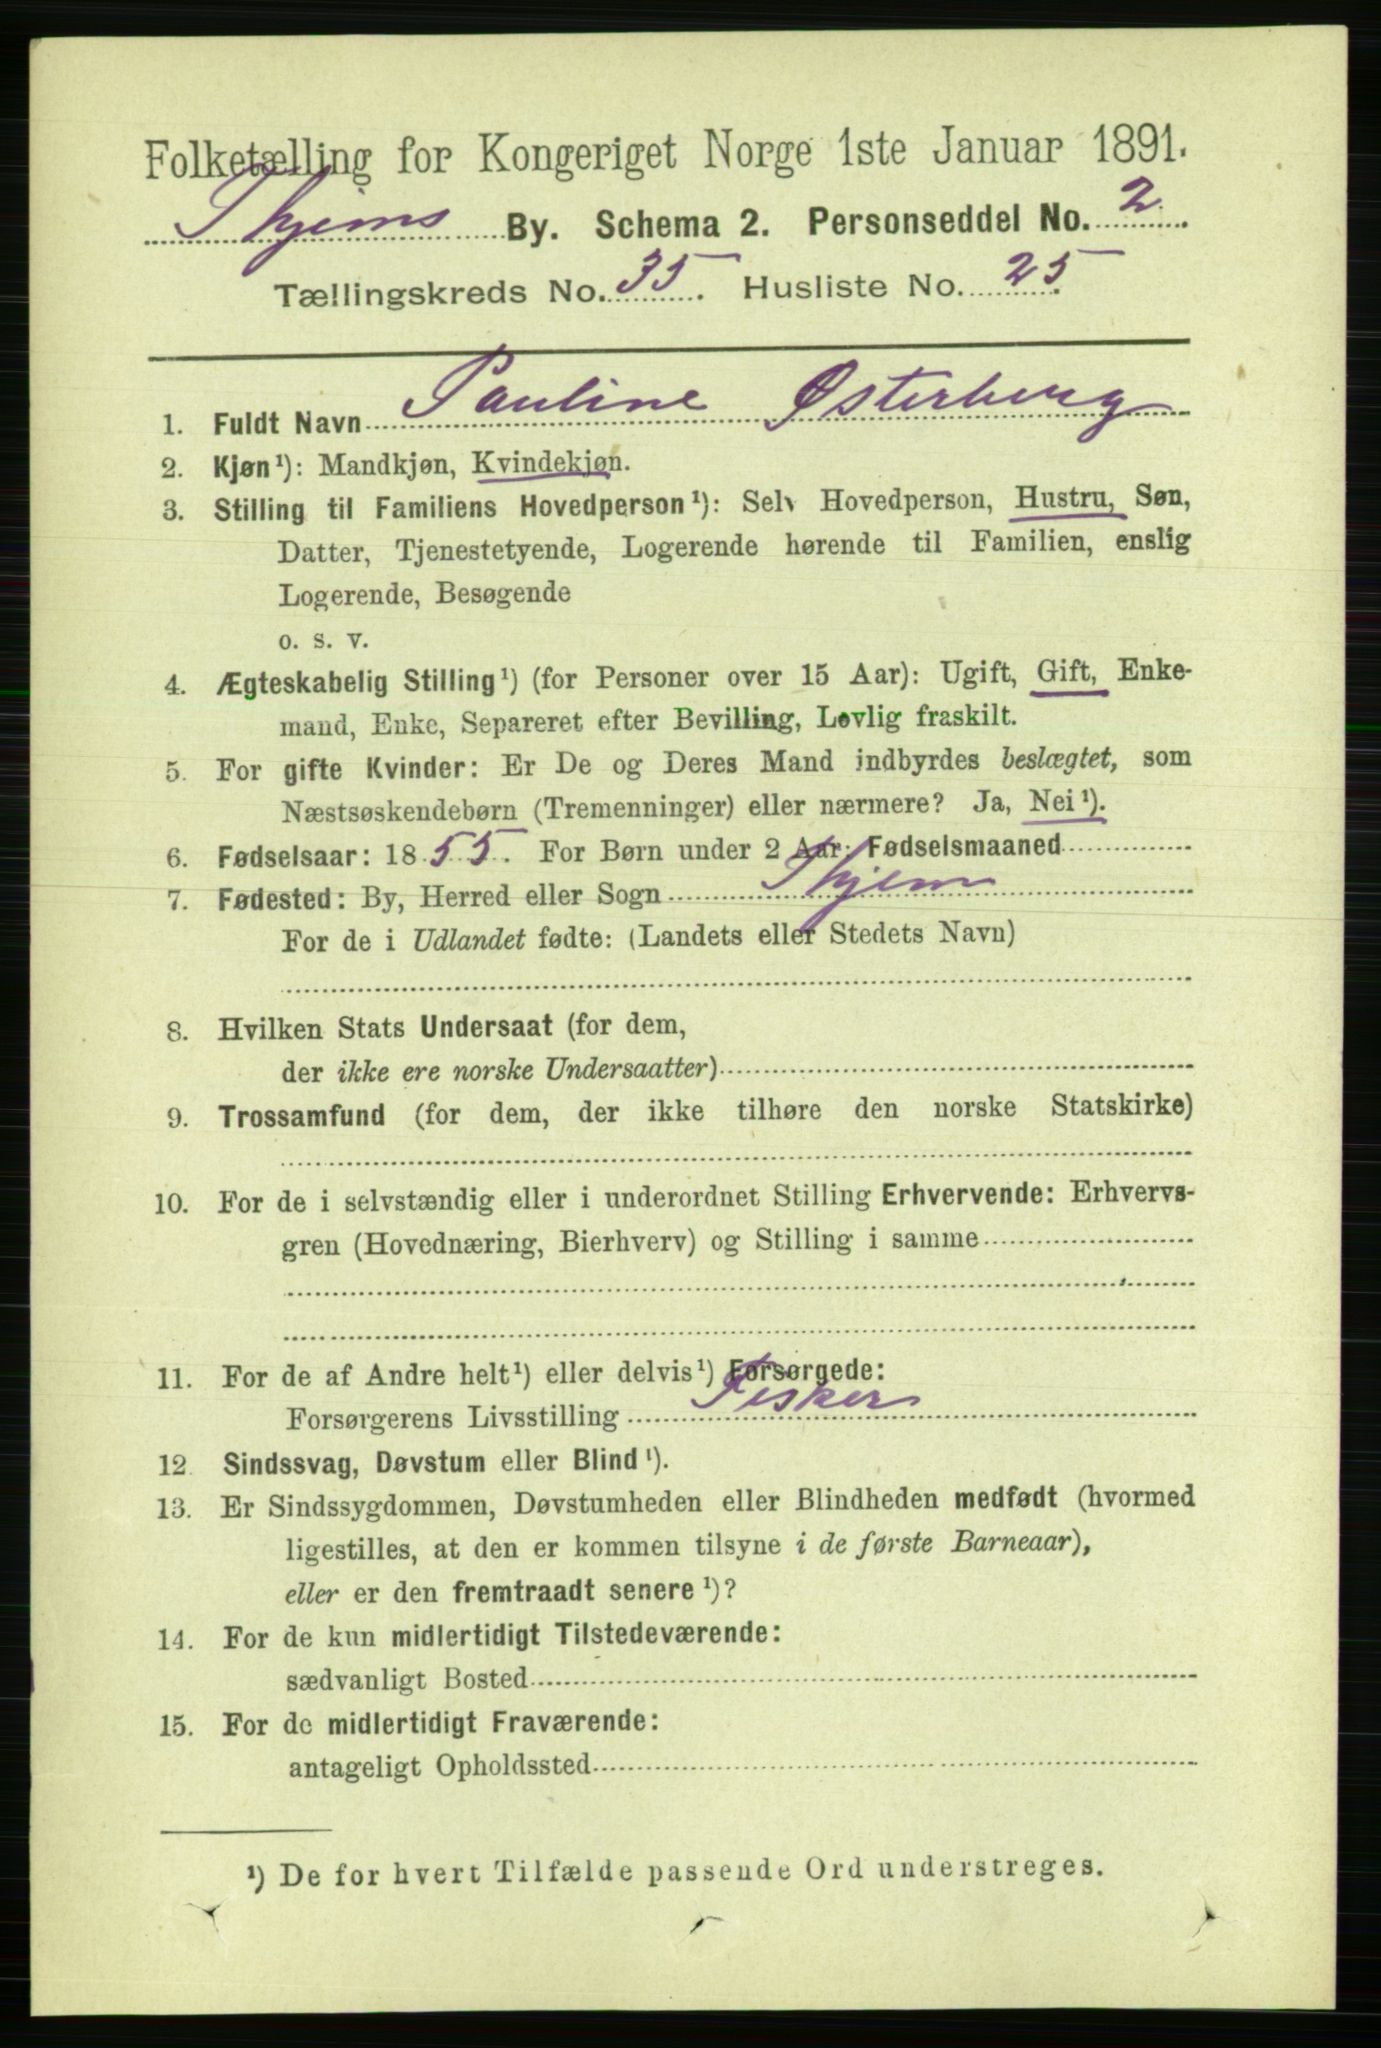 Folketælling for Kongeriget Norge 1ste Januar 1891.
Thjems By. Schema 2. Personseddel No. 2
Tællingskreds No. 35. Husliste No. 25
1. Fuldt Navn Pauline Østerberg
2. Kjøn¹): Mandkjøn, Kvindekjøn.
3. Stilling til Familiens Hovedperson¹): Selv Hovedperson, Hustru, Søn,
Datter, Tjenestetyende, Logerende hørende til Familien, enslig
Logerende, Besøgende
o. s. v.
4. Ægteskabelig Stilling¹) (for Personer over 15 Aar): Ugift, Gift, Enke-
mand, Enke, Separeret efter Bevilling, Lovlig fraskilt.
5. For gifte Kvinder: Er De og Deres Mand indbyrdes beslægtet, som
Næstsøskendebørn (Tremenninger) eller nærmere? Ja, Nei¹).
6. Fødselsaar: 1855. For Børn under 2 Aar: Fødselsmaaned
7. Fødested: By, Herred eller Sogn Thjem
For de i Udlandet fødte: (Landets eller Stedets Navn)
8. Hvilken Stats Undersaat (for dem,
der ikke ere norske Undersaatter)
9. Trossamfund (for dem, der ikke tilhøre den norske Statskirke)
10. For de i selvstændig eller i underordnet Stilling Erhvervende: Erhvervs-
gren (Hovednæring, Bierhverv) og Stilling i samme
11. For de af Andre helt¹) eller delvis¹) Forsørgede:
Forsørgerens Livsstilling Fisker
12. Sindssvag, Døvstum eller Blind¹).
13. Er Sindssygdommen, Døvstumheden eller Blindheden medfødt (hvormed
ligestilles, at den er kommen tilsyne i de første Barneaar),
eller er den fremtraadt senere¹)?
14. For de kun midlertidigt Tilstedeværende:
sædvanligt Bosted
15. For de midlertidigt Fraværende:
antageligt Opholdssted
¹) De for hvert Tilfælde passende Ord understreges.